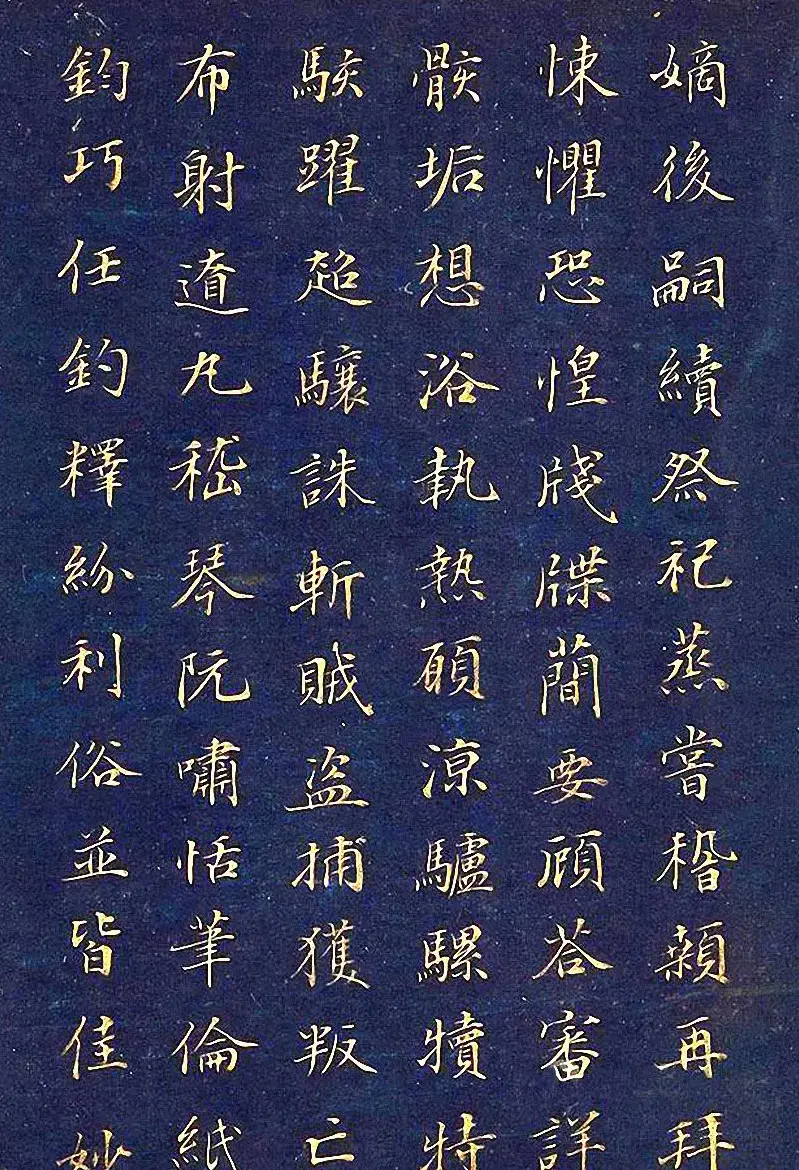 嫡後嗣續祭祀蒸嘗稽顙再拜
悚懼恐惶牋牒簡要顧荅審詳
骸垢想浴執熱願涼驢騾犢特
駭躍超驤誅斬賊盜捕獲叛亡
布射遼丸嵇琴阮嘯恬筆倫紙
鈞巧任釣釋紛利俗並皆佳妙